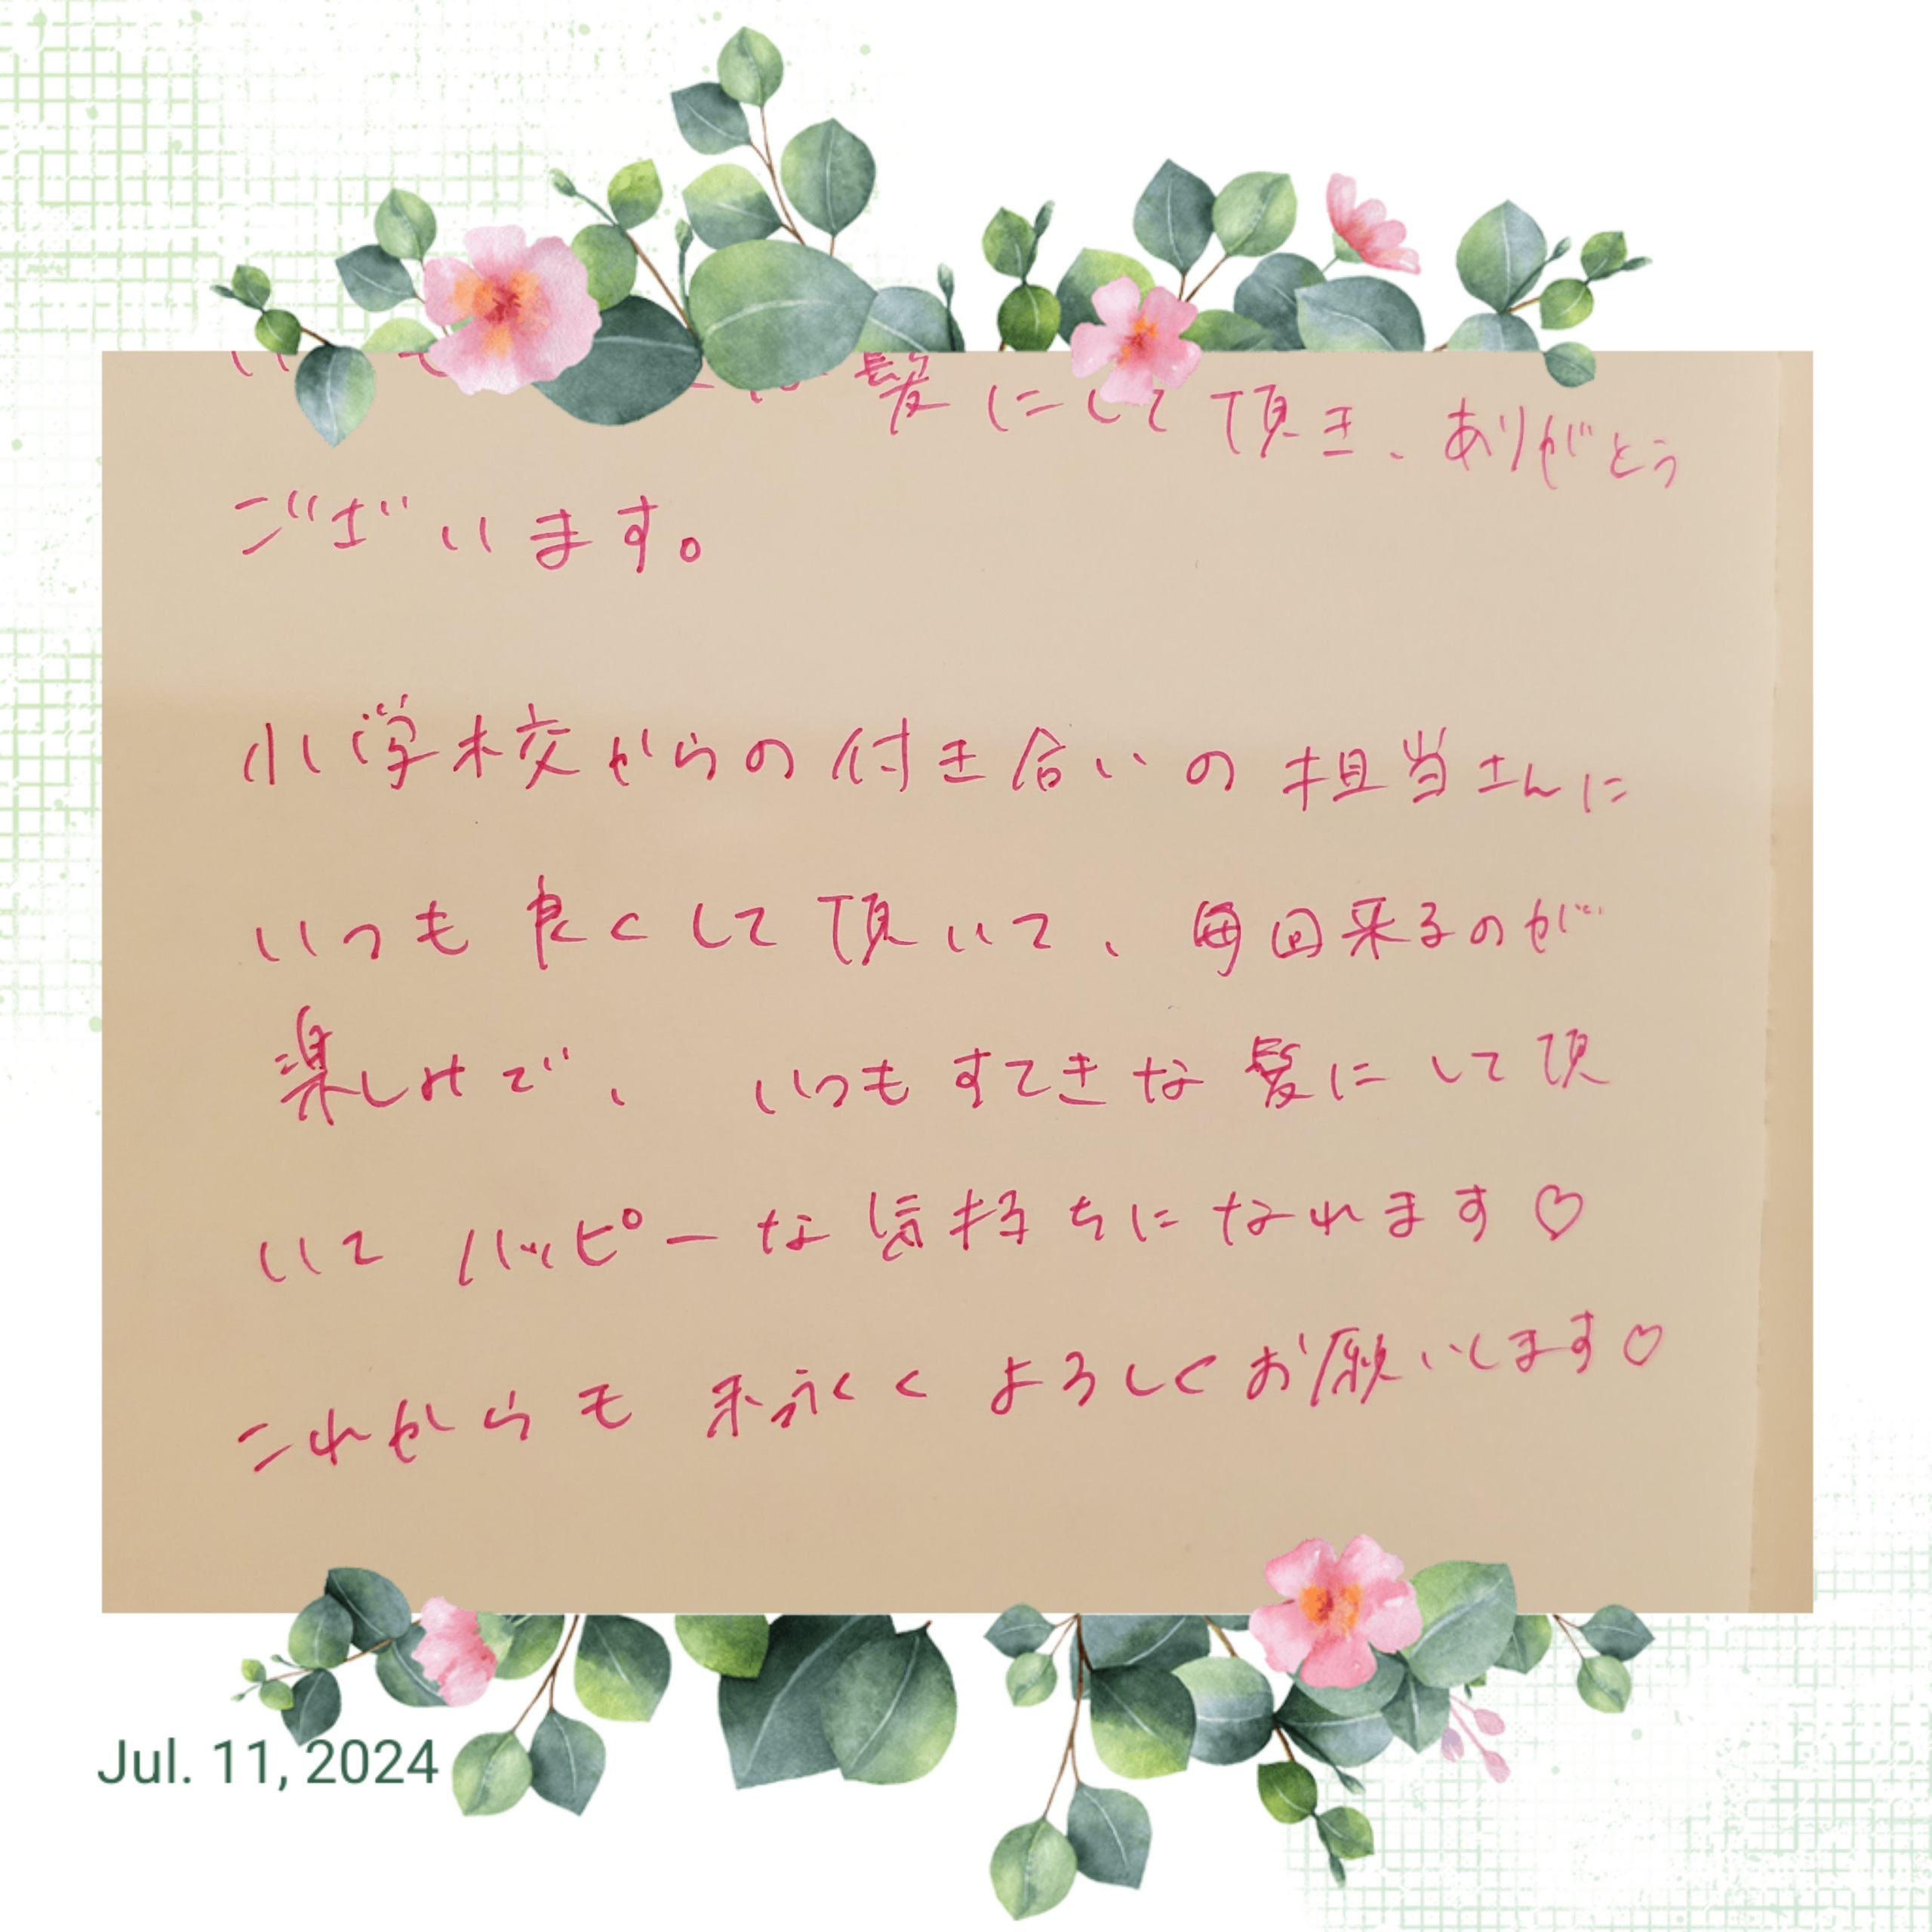 髪にして頂き、ありがとう
ございます。
小学校からの付き合いの担当さんに
いつも良くして頂いて、毎回来るのが
楽しみで、いつもすてきな髪にして頂
いてハッピーな気持ちになれます♡
これからも末永くよろしくお願いします♡
Jul. 11, 2024